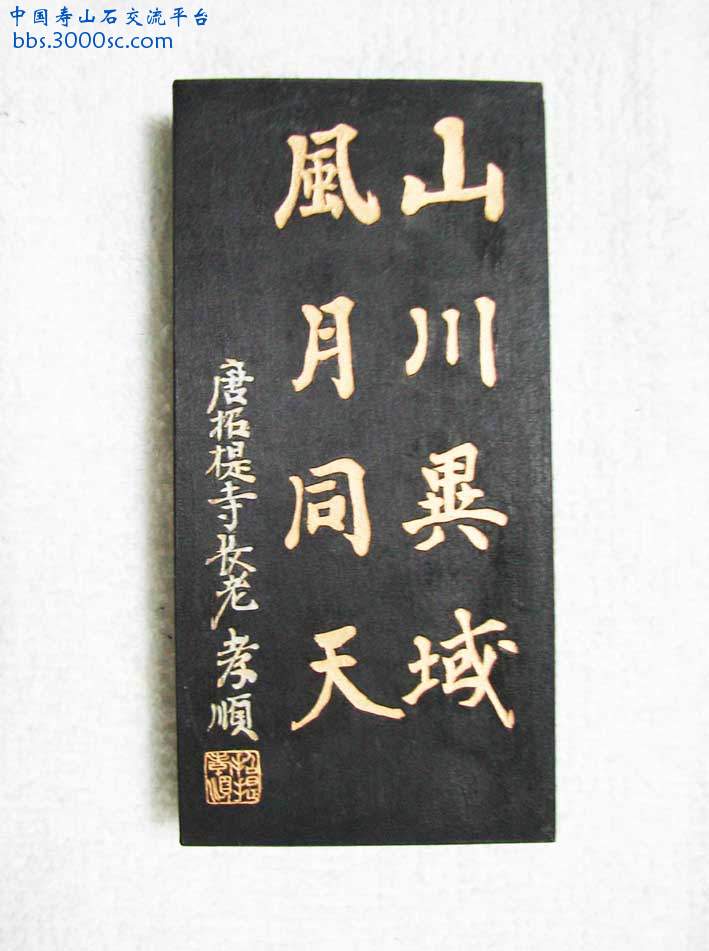 中国寿山石交流平台
bbs.3000sc.com
山川異域
風月同天
唐拓提寺長老 孝順